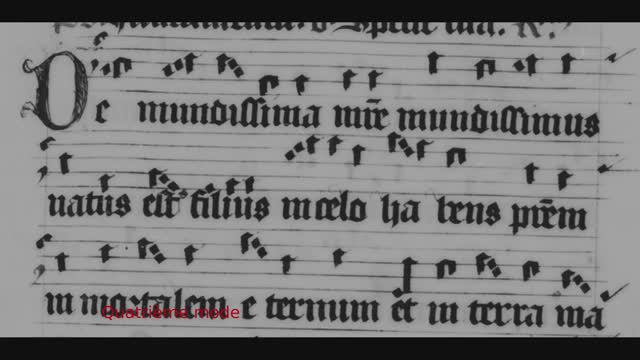 De mundissima mr̄e mundissimus
natus est filius in celo habens pr̄em
in mortalem eternum et in terra ma
Quatrième mode